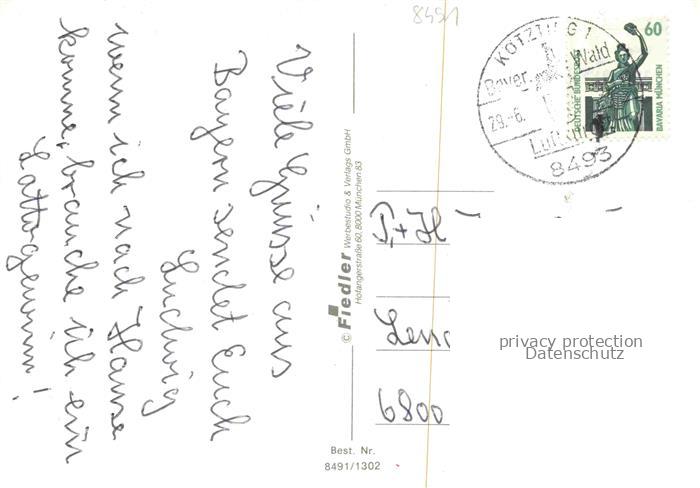 8491
Viele Grüsse aus
Bayern sendet Euch
Ludwig
wenn ich nach Hause
komme, brauche ich ein
Lattogewinn!
© Fiedler Werbestudio & Verlags GmbH
Hofangerstraße 60, 8000 München 83
Best. Nr.
8491/1302
KÖTZTING 1
Bayer. Wald
29.-6.
Luft
8493
60
DEUTSCHE BUNDES
BAVARIA MÜNCHEN
P.+H
6800
privacy protection
Datenschutz